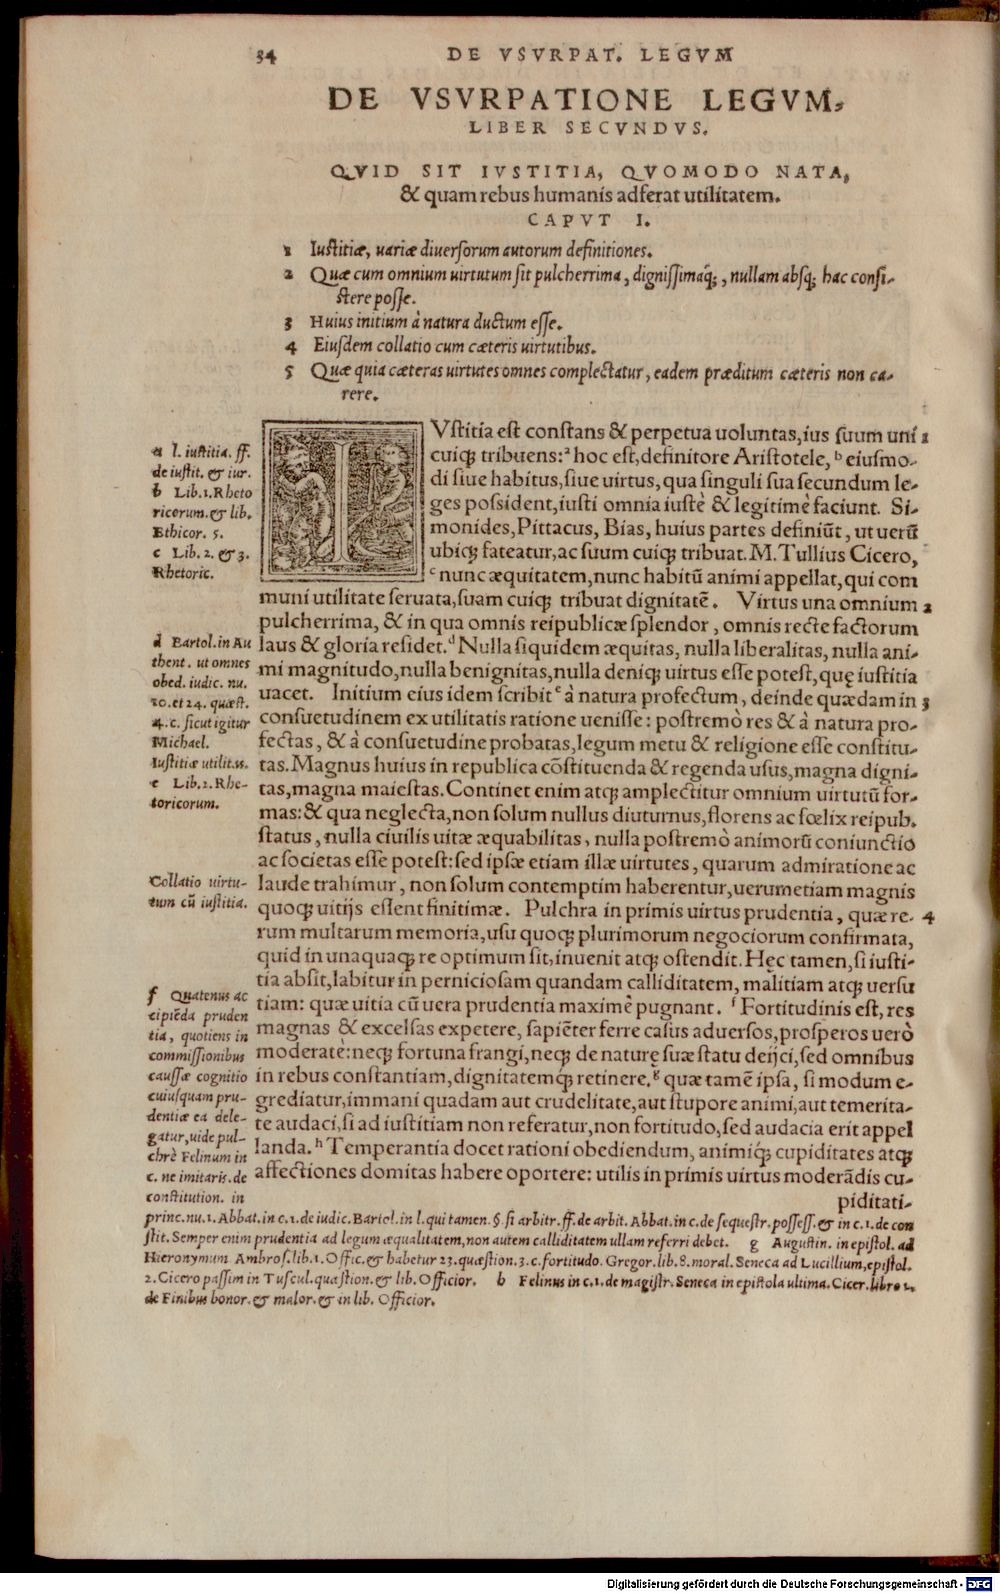 34 DE VSVRPAT. LEGVM
DE VSVRPATIONE LEGVM,
LIBER SECVNDVS.
QVID SIT IVSTITIA, QVOMODO NATA,
& quam rebus humanis adferat utilitatem.
CAPVT I.
1 Iustitiæ, uariæ diuersorum autorum definitiones.
2 Quæ cum omnium uirtutum sit pulcherrima, dignissimaq́;, nullam absq; hac consi-
stere posse.
3 Huius initium à natura ductum esse.
4 Eiusdem collatio cum cæteris uirtutibus.
5 Quæ quia cæteras uirtutes omnes complectatur, eadem præditum cæteris non ca-
rere.
IVstitia est constans & perpetua uoluntas, ius suum uni 1
cuiq; tribuens:ᵃ hoc est, definitore Aristotele, ᵇ eiusmo-
di siue habitus, siue uirtus, qua singuli sua secundum le-
ges possident, iusti omnia iustè & legitimè faciunt. Si-
monides, Pittacus, Bias, huius partes definiũt, ut uerũ
ubiq; fateatur, ac suum cuiq; tribuat. M. Tullius Cicero,
ᶜ nunc æquitatem, nunc habitũ animi appellat, qui com
muni utilitate seruata, suam cuiq; tribuat dignitatẽ. Virtus una omnium 2
pulcherrima, & in qua omnis reipublicæ splendor, omnis recte factorum
laus & gloria residet.ᵈ Nulla siquidem æquitas, nulla liberalitas, nulla ani-
mi magnitudo, nulla benignitas, nulla deniq; uirtus esse potest, quę iustitia
uacet. Initium eius idem scribitᵉ à natura profectum, deinde quædam in 3
consuetudinem ex utilitatis ratione uenisse: postremò res & à natura pro-
fectas, & à consuetudine probatas, legum metu & religione esse constitu-
tas. Magnus huius in republica cõstituenda & regenda usus, magna digni-
tas, magna maiestas. Continet enim atq; amplectitur omnium uirtutũ for-
mas: & qua neglecta, non solum nullus diuturnus, florens ac fœlix reipub.
status, nulla ciuilis uitæ æquabilitas, nulla postremò animorũ coniunctio
ac societas esse potest: sed ipsæ etiam illæ uirtutes, quarum admiratione ac
laude trahimur, non solum contemptim haberentur, uerumetiam magnis
quoq; uitijs essent finitimæ. Pulchra in primis uirtus prudentia, quæ re- 4
rum multarum memoria, usu quoq; plurimorum negociorum confirmata,
quid in unaquaq; re optimum sit, inuenit atq; ostendit. Hęc tamen, si iusti-
tia absit, labitur in perniciosam quandam calliditatem, malitiam atq; uersu
tiam: quæ uitia cũ uera prudentia maximè pugnant. ᶠ Fortitudinis est, res
magnas & excelsas expetere, sapiẽter ferre casus aduersos, prosperos uerò
moderatè: neq; fortuna frangi, neq; de naturę suæ statu deijci, sed omnibus
in rebus constantiam, dignitatemq́; retinere.ᵍ quæ tamẽ ipsa, si modum e-
grediatur, immani quadam aut crudelitate, aut stupore animi, aut temerita-
te audaci, si ad iustitiam non referatur, non fortitudo, sed audacia erit appel
landa.ʰ Temperantia docet rationi obediendum, animiq́; cupiditates atq;
affectiones domitas habere oportere: utilis in primis uirtus moderãdis cu-
piditati-
a l. iustitia. ff.
de iustit. & iur.
b Lib.1. Rheto
ricorum. & lib.
Ethicor. 5.
c Lib. 2. & 3.
Rhetoric.
d Bartol. in Au
thent. ut omnes
obed. iudic. nu.
20. et 24. quæst.
4. c. sicut igitur
Michael.
Iustitiæ utilitas.
e Lib. 2. Rhe-
toricorum.
Collatio uirtu-
tum cũ iustitia.
f Quatenus ac
cipiẽda pruden
tia, quotiens in
commissionibus
caussæ cognitio
cuiusquam pru-
dentiæ ea dele-
gatur, uide pul-
chrè Felinum in
c. ne imitaris. de
constitution. in
princ. nu. 1. Abbat. in c. 1. de iudic. Bartol. in l. qui tamen. §. si arbitr. ff. de arbit. Abbat. in c. de sequestr. possess. & in c. 1. de con
stit. Semper enim prudentia ad legum æqualitatem, non autem calliditatem ullam referri debet. g Augustin. in epistol. ad
Hieronymum Ambros. lib. 1. Offic. & habetur 23. quæstion. 3. c. fortitudo. Gregor. lib. 8. moral. Seneca ad Lucillium, epistol.
2. Cicero passim in Tuscul. quæstion. & lib. Officior. h Felinus in c. 1. de magistr. Seneca in epistola ultima. Cicer. libro 1.
de Finibus bonor. & malor. & in lib. Officior.
Digitalisierung gefördert durch die Deutsche Forschungsgemeinschaft - DFG